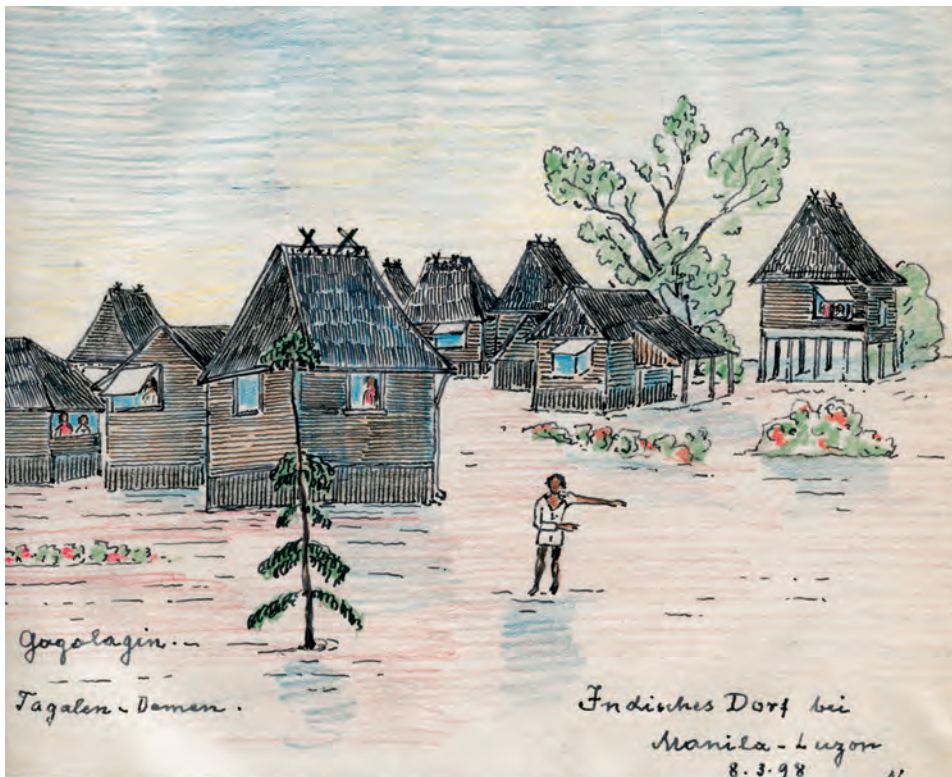 Gogolagin.
Tagalen-Damen.
Indisches Dorf bei
Manila-Luzon
8.3.98